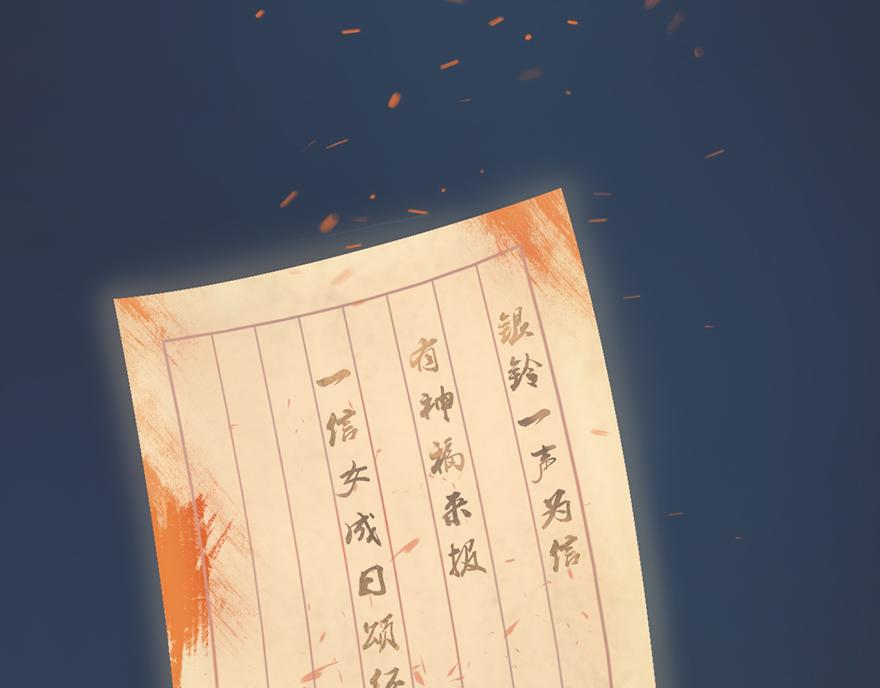 银铃一声为信
有神福来报
一信女成日颂经